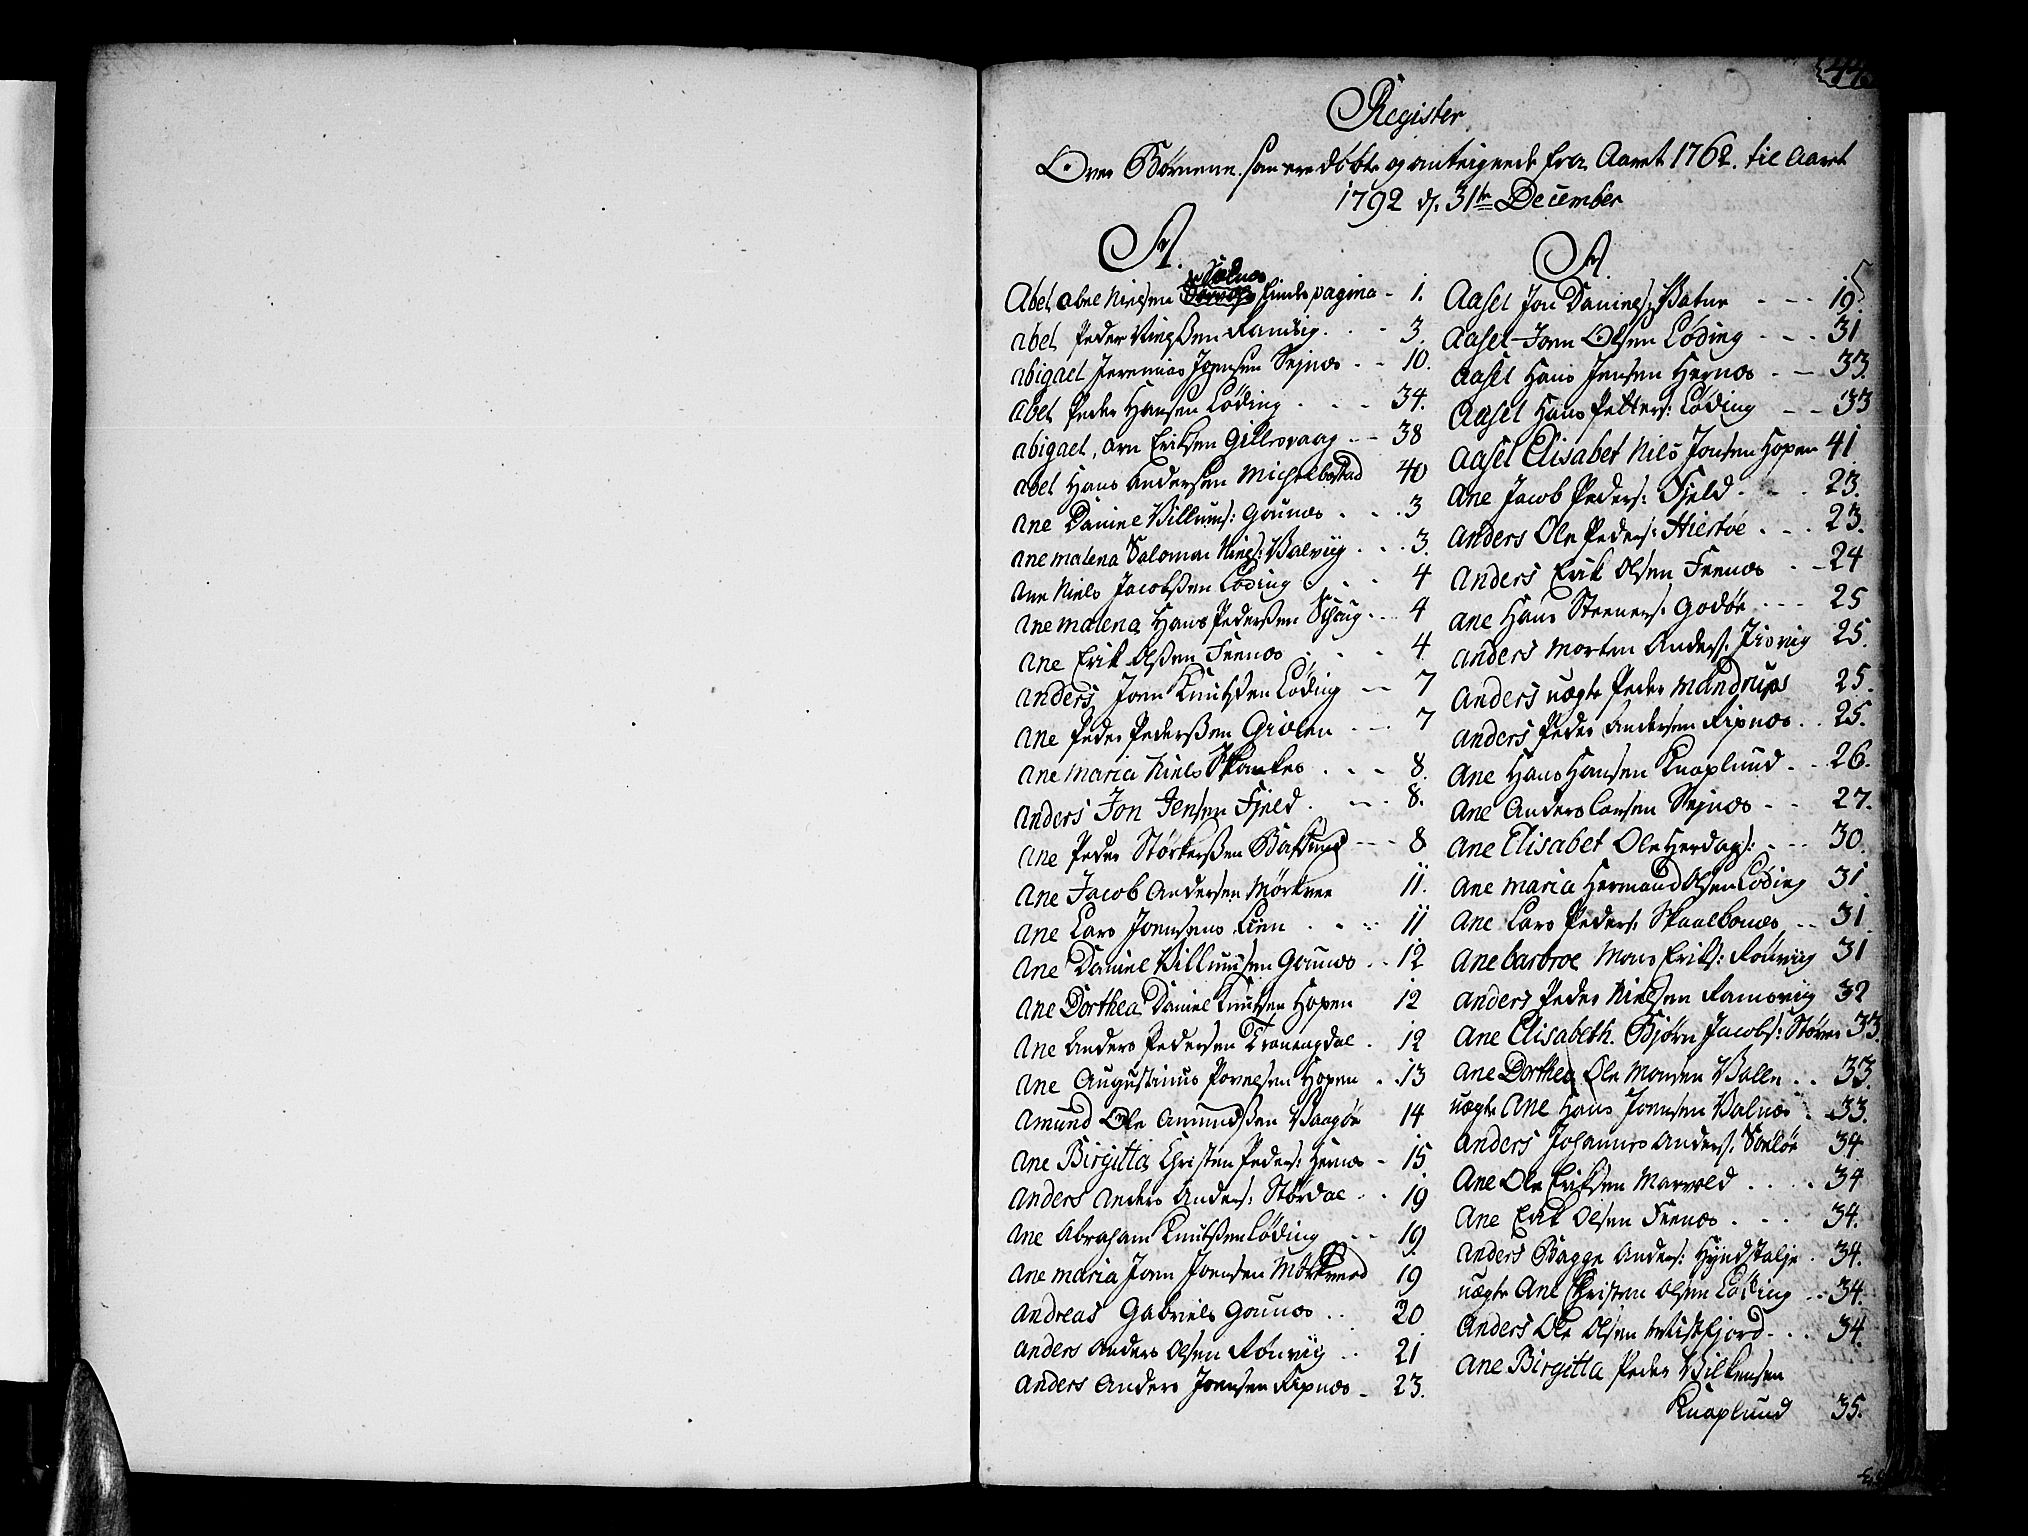 44.
Register
Over Børnene som ere døbte og anteignede fra Aaret 1762. til Aaret
1792 d. 31te December
A.
Abel, Abel Nielsen findes pagina - 1.
Abel Peder Ramsvig. - 3.
Abigael Jeremias Joensen Seinæs - - 10.
Abel Peder Hansen Løding - - - 34.
Abigael, Arn Eriksen Gillesvaag - - 38
Abel Hans Andersen Michelbostad 40
Ane Daniel Villums: Gounæs - - - 3
Ane Malena Salomon Niels: Valviig - - - 3.
Ane Niels Jacobsen Løding - - - 4
Ane Malena Hans Pedersen Schaug - - - 4
Ane Erik Olsen Feenæs - - - 4
Anders, Joen Knutsen Løding - - 7
Ane Peder Pedersen Gioeen - - - 7
Ane Maria Niels Skankes - - - 8.
Anders Jon Jensen Fjeld. - - - 8.
Ane Peder Størkersen - - - 8
Ane Jacob Andersen Mørkvee 11.
Ane Lars Joensens Lien - - - 11
Ane Daniel Villumsen Gounæs - - 12
Ane Dorthea Daniel Knutsen Hopen 12
Ane Anders Pedersen . 12
Ane Augustinus Povelsen Hopen . 13
Amund Ole Amundsen Vaagøe 14
Ane Birgitta Christen Peders: Hernæs - 15
Anders Anders Anders: Størdal - - 19
Ane Abraham Knutsen Løding - - 19
Ane Maria Joen Joensen Mørkveed 19
Andreas Gabriels Gounæs - - 20
Anders Anders Olsen Rønviig - - 21
Anders Anders Joensen Ripnæs - 23.
A.
Aasel Jon Daniels: Batne - - - 19
Aasel Joen Olsen Løding - - - 31
Aasel Hans Jensen Hernæs - - 33.
Aasel Hans Petters: Løding - - 33
Aasel Elisabet Nils Jonsen Hopen 41
Ane Jacob Peders: Fjeld - - - 23.
Anders Ole Peders: Hiertøe - - - 23.
Anders Erik Olsen Feenæs - - 24
Ane Hans Steeners: Godøe - - - 25
Anders Morten Anders: 25.
Anders uægte Peder Mandrups 25.
Anders Peder Andersen Ripnæs. - 25.
Ane Hans Hansen Knaplund - - 26.
Ane Anders Larsen Sejnæs - - 27.
Ane Elisabet Ole Herdags: - - - 30.
Ane Maria Hermand Olsen Løding 31
Ane Lars Peders: Skaalbonæs - - 31.
Ane Barbroe Mons Eriks: Rønviig 31
Anders Peder Nielsen Ramsviig 32
Ane Elisabeth. Bjørn Jacobs: Støver 33.
Ane Dorthea Ole Monsen Valen - - 33.
uægte Ane Hans Joensen Valnæs - 33.
Anders Johannes Anders: 34
Ane Ole Eriksen Marvold - - - 34
Ane Erik Olsen Feenæs - - - 34.
Anders Bagge Anders: Hyndstalje - 34.
uægte Ane Christen Olsen Løding - - 34.
Anders Ole Olsen Mistfjord - - - 34.
Ane Birgitta Peder Vilkensen
Knaplund 35.